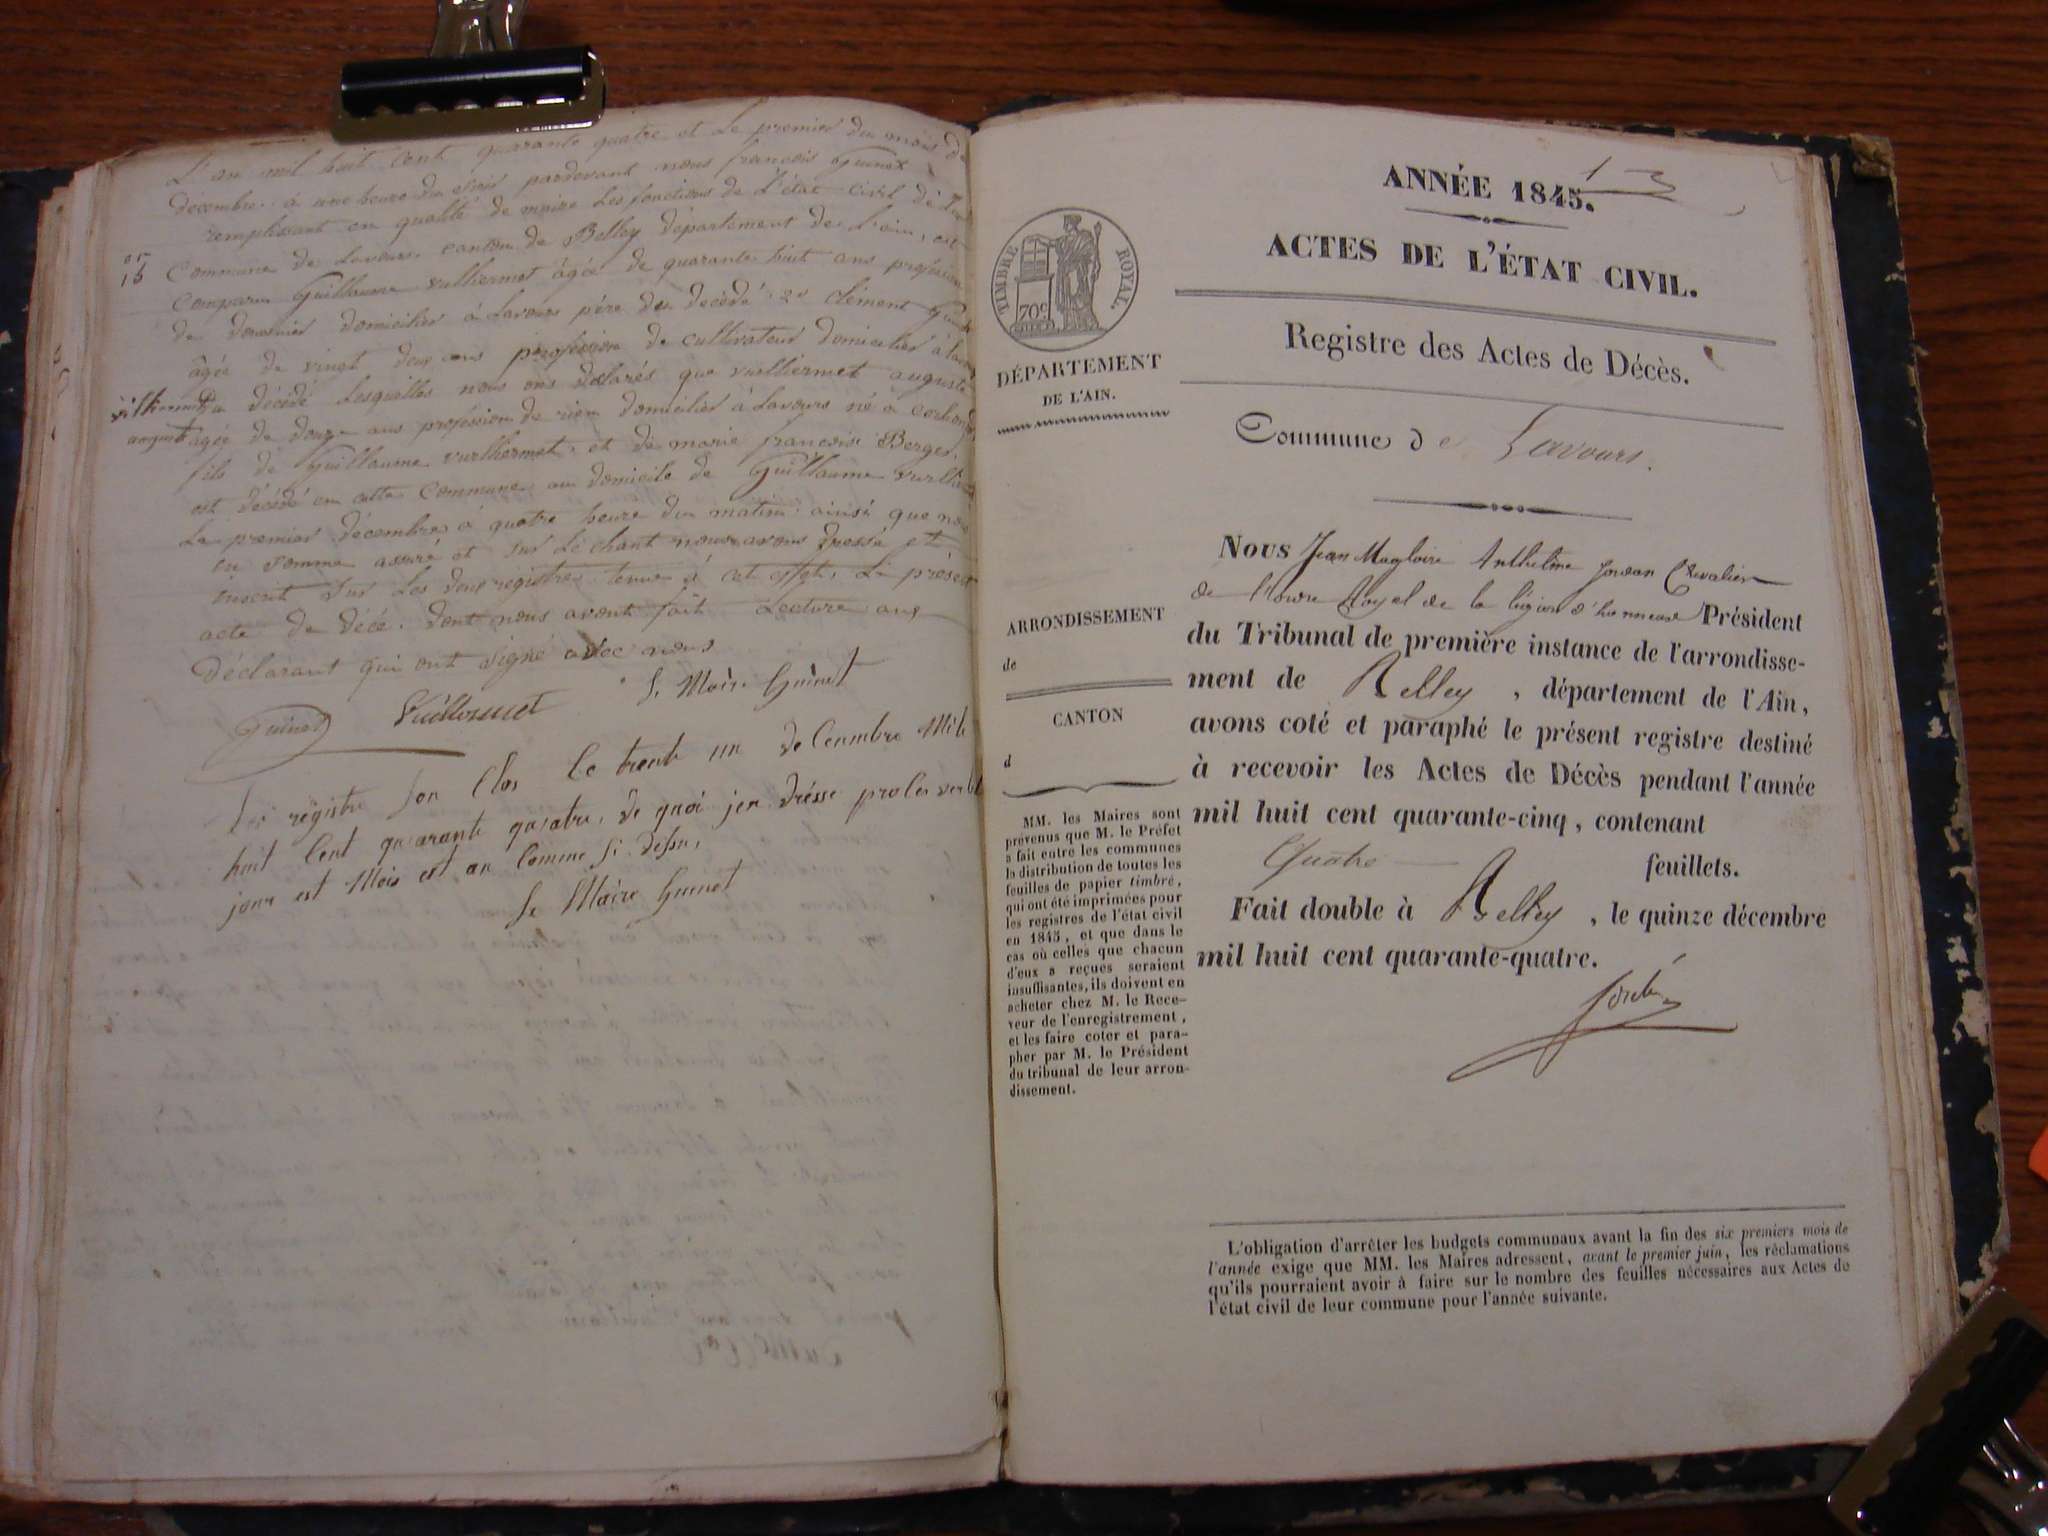 L'an mil huit cent quarante quatre et le premier du mois de
décembre à une heure du soir pardevant nous françois Guinet
remplissant en qualité de maire les fonctions de l'état civil de
15 Commune de Lavours canton de Belley département de L'ain, est
Comparu Guillaume vulhermet âgée de quarante huit ans profession
de douanier domicilier à Lavours père du decédé 2º Clément
âgée de vingt deux ans profession de cultivateur domicilier à
décédé Lesquelles nous ons déclarés que vuilliermet auguste
august agée de douze ans profession de rien domicilier à Lavours né à
fils de Guillaume vurlhermet et de marie françoise Berger
est décédé en cette Commune au domicile de Guillaume
Le premier décembre à quatre heure du matin ainsi que nous
en somme assuré et sur Le chant nous avons dressé et
inscrit sur Les deux registres tenue à cet effet, Le présent
acte de décé. dont nous avont fait Lecture aux
Déclarant qui ont signé avec nous
Guinet Vuillermet Le Maire Guinet
registre son Clos Le trente un de Cenmbre Mile
huit Cent quarante quatre, de quoi jen drésse procès verbal
jour est Mois est an Comme si desu,
Le Maire Guinet
13
ANNÉE 1845.
ACTES DE L'ÉTAT CIVIL.
Registre des Actes de Décès.
TIMBRE ROYAL.
70c
DÉPARTEMENT
DE L'AIN.
Commune de Lavours.
Nous Jean Magloire Anthelme Jordan Chevalier
de l'ordre Royal de la légion d'honneur Président
du Tribunal de première instance de l'arrondisse-
ment de Belley, département de l'Ain,
avons coté et paraphé le présent registre destiné
à recevoir les Actes de Décès pendant l'année
mil huit cent quarante-cinq, contenant
Quatre feuillets.
Fait double à Belley, le quinze décembre
mil huit cent quarante-quatre.
ARRONDISSEMENT
de
CANTON
d
MM. les Maires sont
prévenus que M. le Préfet
a fait entre les communes
la distribution de toutes les
feuilles de papier timbré,
qui ont été imprimées pour
les registres de l'état civil
en 1845, et que dans le
cas où celles que chacun
d'eux a reçues seraient
insuffisantes, ils doivent en
acheter chez M. le Rece-
veur de l'enregistrement,
et les faire coter et para-
pher par M. le Président
du tribunal de leur arron-
dissement.
L'obligation d'arrêter les budgets communaux avant la fin des six premiers mois de
l'année exige que MM. les Maires adressent, avant le premier juin, les réclamations
qu'ils pourraient avoir à faire sur le nombre des feuilles nécessaires aux Actes de
l'état civil de leur commune pour l'année suivante.